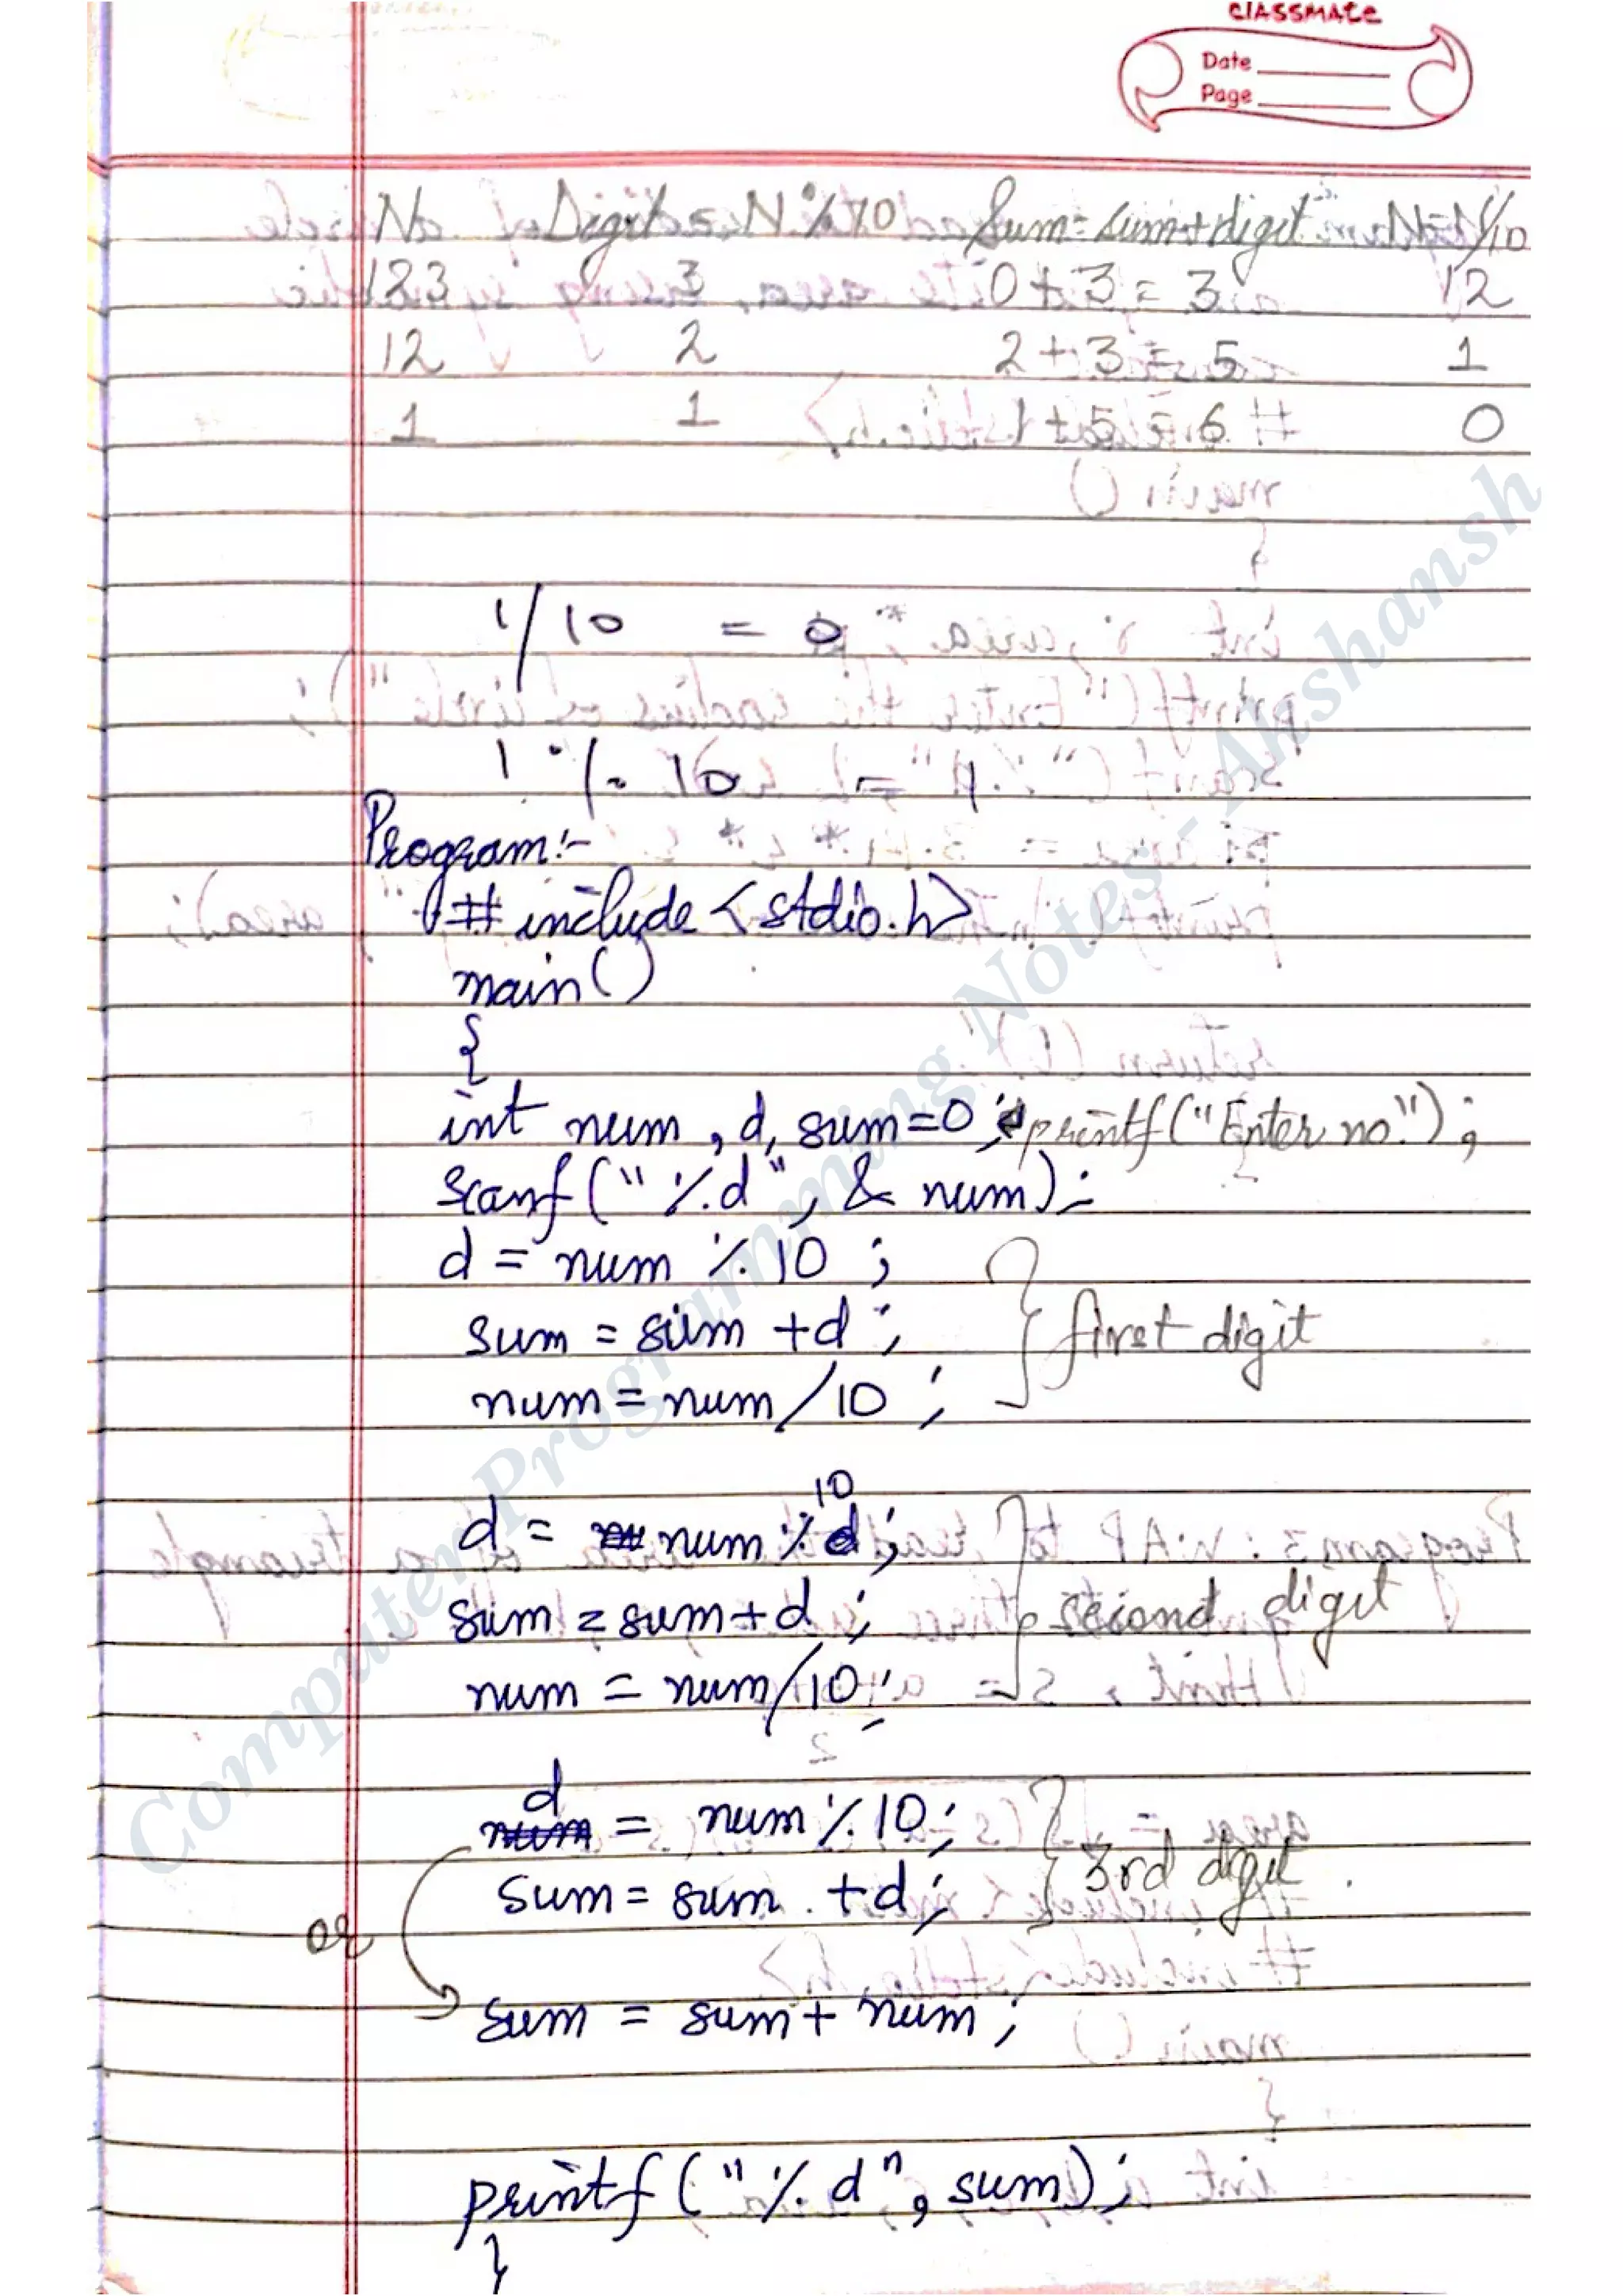 classmate
Date
Page
N Digit = N % 10 Sum = sum + digit N = N/10
123 3 0 + 3 = 3 12
12 2 2 + 3 = 5 1
1 1 1 + 5 = 6 0
1/10 = 0
1 % 10 = 1
Program:-
# include <stdio.h>
main()
{
int num, d, sum=0; printf("Enter no.");
scanf("%d", & num);
d = num % 10 ;
sum = sum + d ; first digit
num = num / 10 ;
d = num % 10 ;
sum = sum + d ; second digit
num = num/10 ;
d = num % 10;
sum = sum + d; 3rd digit.
or
sum = sum + num ;
printf("%d", sum);
}
Computer Programming Notes - Akshansh